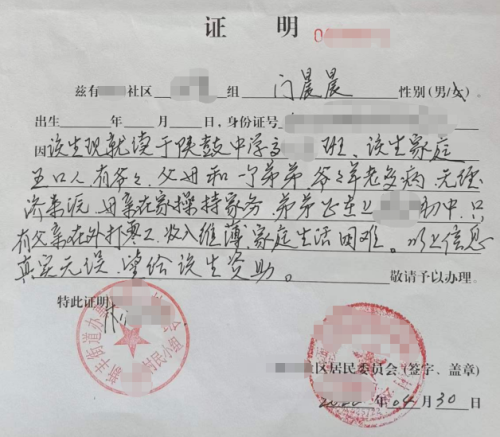 证 明
兹有 社区 组 门晨晨 性别(男/女)
出生 年 月 日,身份证号
因该生现就读于陕鼓中学高 班、该生家庭
五口人有爷々、父母和一个弟弟 爷々年老多病,无经
济来源,母亲在家操持家务,弟弟 在上 初中,只
有父亲在外打零工,收入维薄,家庭生活困难。以上信息
真实无误,望给该生资助。 敬请予以办理。
特此证明
区居民委员会(签字、盖章)
年 04 月 30 日